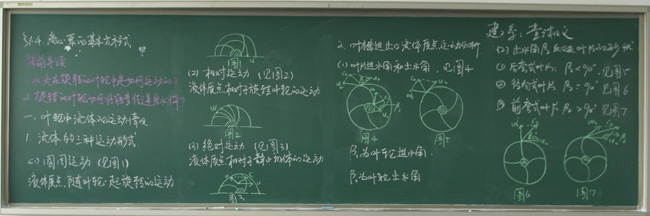 §1-4 离心泵的基本方程式
课前导读
1. 水流在旋转的叶轮中是如何运动的?
2. 旋转的叶轮如何将能量传递给水的?
一、叶轮中流体的运动情况
1. 流体的三种运动形式
(1) 圆周运动 (见图1)
流体质点随叶轮一起旋转的运动
图1
(2) 相对运动 (见图2)
流体质点相对于旋转叶轮的运动
图2
(3) 绝对运动 (见图3)
流体质点相对于静止机体的运动
图3
2. 叶槽进出口流体质点运动分析
(1) 叶片进水角和出水角, 见图4
图4
图5
β₁为叶轮进水角
β₂为叶轮出水角
(2) 出水角β₂
① 后弯式叶片 β₂<90° 见图5
② 径向式叶片 β₂=90° 见图6
③ 前弯式叶片 β₂>90° 见图7
图6
图7